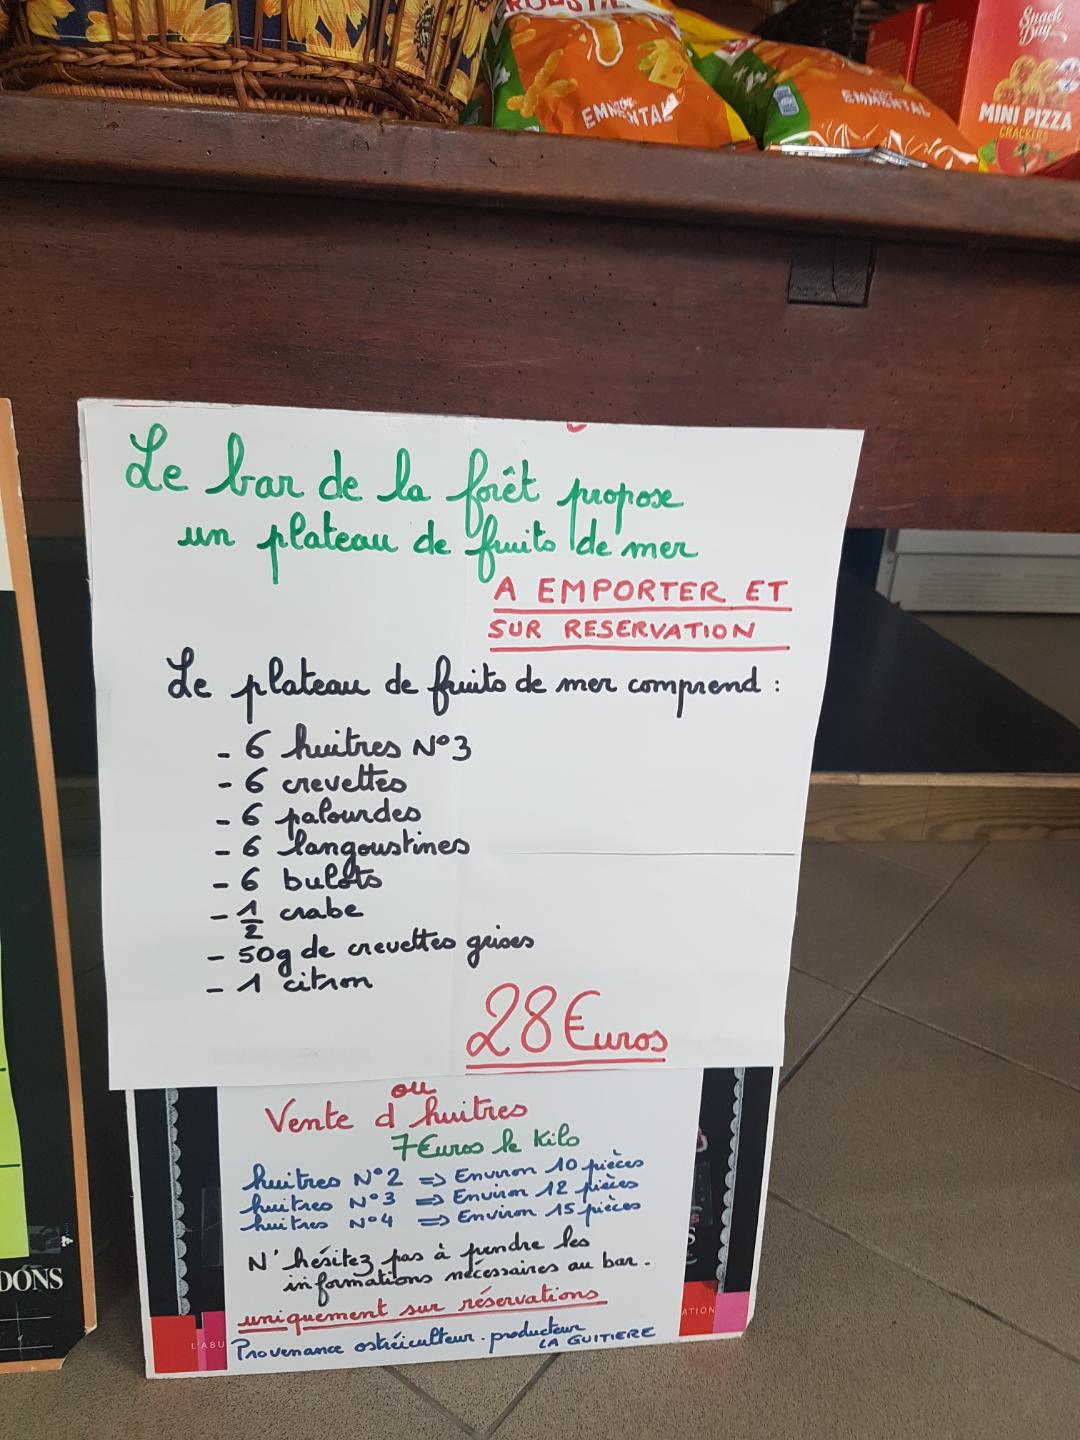 EMMENTAL
EMMENTAL
Snack
Day
MINI PIZZA
CRACKERS
Le bar de la forêt propose
un plateau de fruits de mer
A EMPORTER ET
SUR RESERVATION
Le plateau de fruits de mer comprend :
- 6 huitres N°3
- 6 crevettes
- 6 palourdes
- 6 langoustines
- 6 bulots
- 1/2 crabe
- 50g de crevettes grises
- 1 citron
28 Euros
ou
Vente d'huitres
7 Euros le Kilo
huitres N°2 => Environ 10 pièces
huitres N°3 => Environ 12 pièces
huitres N°4 => Environ 15 pièces
N'hésitez pas à prendre les
informations nécessaires au bar.
uniquement sur réservations
Provenance ostréiculteur-producteur
LA GUITIERE
DONS
L'ABU
ATION